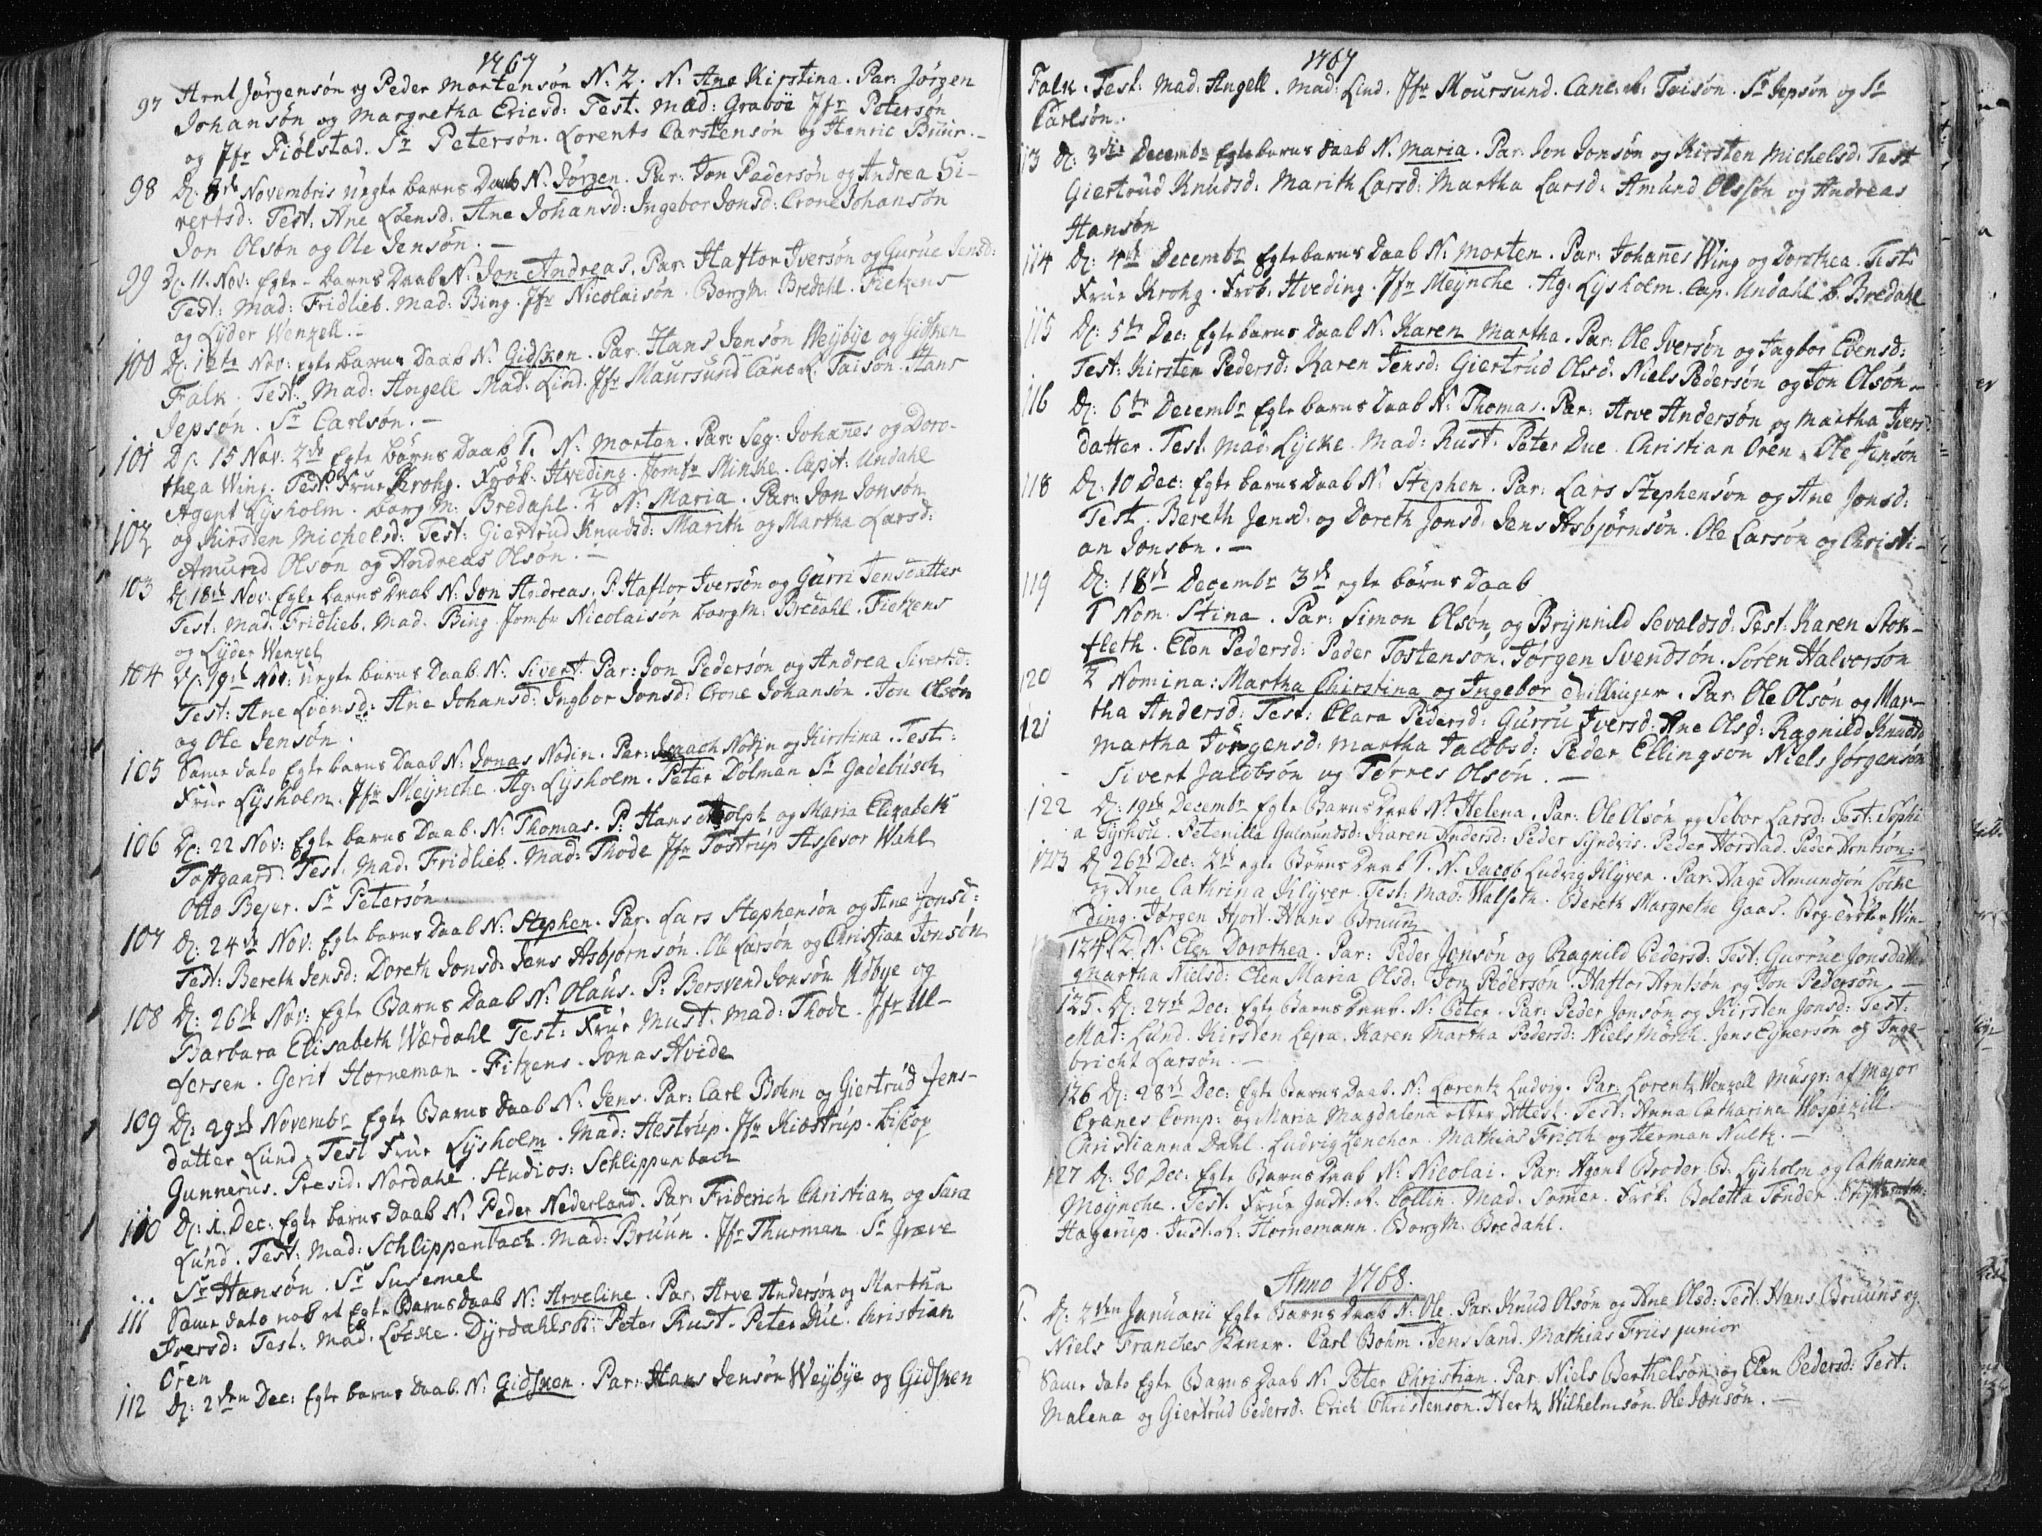 1767
97 Arnt Jörgensön og Peder Mortensön N. 2. N: Ane Kirstina. Par: Jörgen
Johansön og Margretha Ericsd: Test. Mad: Graböe Jfr Petersön
og Jfr Fiölstad. Sr Petersön. Lorents Carstensön og Henric Buur. –
98 D: 8de Novembris uegte barns Daab N. Jörgen. Par: Jon Pedersön og Andrea Si-
vertsd: Test: Ane Löensd: Ane Johansd: Ingebor Jonsd: Crone Johansön
Jon Olsön og Ole Jensön. –
99 D: 11. Nov: Egte barns Daab N: Jon Andreas. Par: Haftor Iversön og Gurue Jensd:
Test: Mad: Fridlieb. Mad: Bing. Jfr Nicolaisön. BorgM: Bredahl. Fietzens
og Lyder Wenzell. –
100 D: 12te Nov: Egte barns Daab N: Gidsken. Par: Hans Jensön Weybye og Gidsken
Falk. Test: Mad: Angell Mad: Lind. Jfr Maursund Canc. R. Taisön. Hans
Jepsön. Sr Carlsön. –
101 D: 15 Nov. 2de Egte börns Daab 1. N: Morten. Par: Seg: Johañes og Doro-
thea Wing. Test. Frue Krohg. Frök: Hveding. Jomfr Minche. Capit: Undahl
Agent Lysholm. borgM: Bredahl. 2d N: Maria. Par: Jon Jonsön
102 og Kirsten Michelsd: Test: Giertrud Knudsd: Marith og Martha Larsd:
Amund Olsön og Andreas Olsön. –
103 D: 18de Nov: Egte barns Daab N: Jon Andreas. P. Haftor Iversön og Gurri Jensdatter
Test: Mad. Fridlieb. Mad. Bing. Jomfr Nicolaisön borgM: Bredahl. Fietzens
og Lyder Wenzel
104 D: 19de Nov: uegte barns Daab N: Sivert Par: Jon Pedersön og Andrea Sivertsd:
Test: Ane Löensd: Ane Johansd: Ingbor Jonsd: Crone Johansön. Jon Olsön
og Ole Jensön.
105 Same dato Egte barns Daab N: Jonas Nodin. Par: Isaach Nodin og Kirstina. Test:
Frue Lysholm. Jfr Meynche. Ag: Lysholm. Peter Dolman Sr Gadebusch
106 D: 22 Nov: Egte barns Daab. N: Thomas. P: Hans Adolph og Maria Elizabeth
Toftgaard. Test. Mad: Fridlieb. Mad: Thode Jfr Tostrup Assesor Wahl
Otto Bejer. Sr Petersön
107 D: 24de Nov: Egte barns Daab N: Stephen. Par. Lars Stephensön og Ane Jonsd:
Test: Bereth Jensd: Doreth Jonsd: Jens Asbjornsön. Ole Larsön og Christian Jonsön
108 D: 26de Nov: Egte Barns Daab N: Olaus. P: Bersvend Jonsön Röbye og
Barbara Elisabeth Wærdahl Test: Frue Must. Mad: Thode. Jfr Ul-
fersen. Gerit Horneman. Fitzens. Jonas Hvide
109 D: 29de Novembr Egte Barns Daab N: Jens. Par: Carl Bohm og Giertrud Jens-
datter Lund. Test Frue Lysholm. Mad: Hestrup. Jfr Kiöstrup. Biskop
Gunnerus. Presid: Nordahl. Studios: Schlippenbach
110 D: 1. Dec: Egte barns Daab N. Peder Nederland. Par: Friderich Christian og Sara
Lund. Test: Mad: Schlippenbach. Mad: Bruun. Jfr Thurman Sr Græve
Sr Hansön. Sr Susemel
111 Same dato nok et Egte Barns daab N: Arveline. Par: Arve Andersön og Martha
Iversd: Test: Mad: Löcke. Dyrdahls: Peter Rust. Peter Due. Christian
Ören
112 D: 2den Dec: Egte barns Daab. N: Gidsken. Par: Hans Jensön Weybye og Gidsken
1767
Falk. Test: Mad: Angell. Mad: Lind. Jfr Moursund. Canc: R. Taisön. Sr Jepsön og Sr
Carlsön.
113 D: 3die Decembr Egte barns Daab N: Maria. Par: Jon Jonsön og Kirsten Michelsd: Test
Giertrud Knudsd: Marith Larsd: Martha Larsd: Amund Olssön og Andreas
Hansön
114 D: 4de Decembr Egte barns Daab N: Morten. Par: Johañes Wing og Dorothea. Test:
Frue Krohg. Frök. Hveding. Jfr Meynche. Ag. Lysholm. Cap. Undahl b. Bredahl
115 D: 5te Dec: Egte barns Daab N: Karen Martha. Par: Ole Iversön og Ingbor Evensd:
Test: Kirsten Pedersd: Karen Jensd: Giertrud Olsd. Niels Pedersön og Jon Olsön. –
116 D: 6te Decembr Egte barns Daab N: Thomas. Par: Arve Andersön og Martha Ivers-
datter. Test. Mad: Lycke. Mad: Rust. Peter Due. Christian Oren. Ole Jensön
118 D: 10 Dec: Egte barns Daab N: Stephen. Par: Lars Stephensön og Ane Jonsd:
Test. Bereth Jensd. og Doreth Jonsd. Jens Asbjörnsön. Ole Larsön og Christi-
an Jonsön. –
119 D: 18de Decembr 3de egte börns Daab
1 Nom. Stina. Par: Simon Olsön og Brynnild Sevaldsd: Test: Karen Stok-
fleth. Elen Pedersd: Peder Tostensön. Jörgen Svendsön. Soren Halvorsön
120 2 Nomina: Martha Chirstina og Ingebor tvillinger. Par: Ole Olsön og Mar-
121 tha Andersd: Test: Clara Pedersd: Gurru Iversd: Ane Olsd: Ragnild Knudsd
Martha Jörgensd: Martha Jacobsd: Peder Ellingson Niels Jörgensön
Sivert Jacobsön og Torres Olsön. –
122 D: 19de Decembr Egte Barns Daab N: Helena. Par: Ole Olsön og Sebor Larsd: Test: Sophi-
a Dyrhou. Petenilla Gulmundsd: Karen Andersd: Peder Syndvis. Peder Horstad. Peder Arntsön:
123 D: 26de Dec: 2de egte Börns Daab 1. N. Jacob Ludvig Klyver. Par: Hage Amundsön Löche
og Ane Cathrina Klyver. Test. Mad: Walseth. Bereth Margrethe Gaas. Brg: Dröker Win-
ding. Jörgen Hjort. Hans Bruun
124 2. N. Elen Dorothea. Par: Peder Jonsön og Ragnild Pedersd: Test: Gurrue Jonsdatter
Martha Nielsd: Elen Maria Olsd: Jon Pedersön. Haftor Arntsön og Jon Pedersön
125. D: 27de Dec: Egte Barns Daab. N: Peter. Par: Peder Jonsön og Kirsten Jonsd: Test:
Mad: Lund. Kirsten Lepra. Karen Martha Pedersd: Niels Mörch. Jens Eynersön og Inge-
bricht Larsön. –
126 D: 28de Dec: Egte Barns Daab. N: Lorentz Ludvig. Par: Lorentz Wenzell Musqr: af Major
Cranes Comp: og Maria Magdalena efter Attest. Test: Anna Catharina Hospizill.
Christianna Dahl. Ludvig Lencher. Mathias Frieth og Herman Nultz. –
127 D: 30 Dec: Egte Barns Daab N: Nicolai. Par: Agent Broder B: Lysholm og Catharina
Meynche. Test. Frue Just: R. Collin. Mad: Somea. Frök. Boletta Tönder.
Hagerup. Just: R: Hornemann. BorgM: Bredahl.
Anno 1768.
1. D: 2den Januarii Egte Barns Daab N: Ole. Par: Knud Olsön og Ane Olsd: Test: Hans Bruuns og
Niels Franches Koner. Carl Bohm. Jens Sand. Mathias Friis junior
Same dato Egte Barns Daab N: Peter Christian. Par: Niels Berthelsön og Elen Pedersd: Test:
Malena og Giertrud Pedersd: Erich Christenson. Hertz Wilhelmsön. Ole Jonsön. –